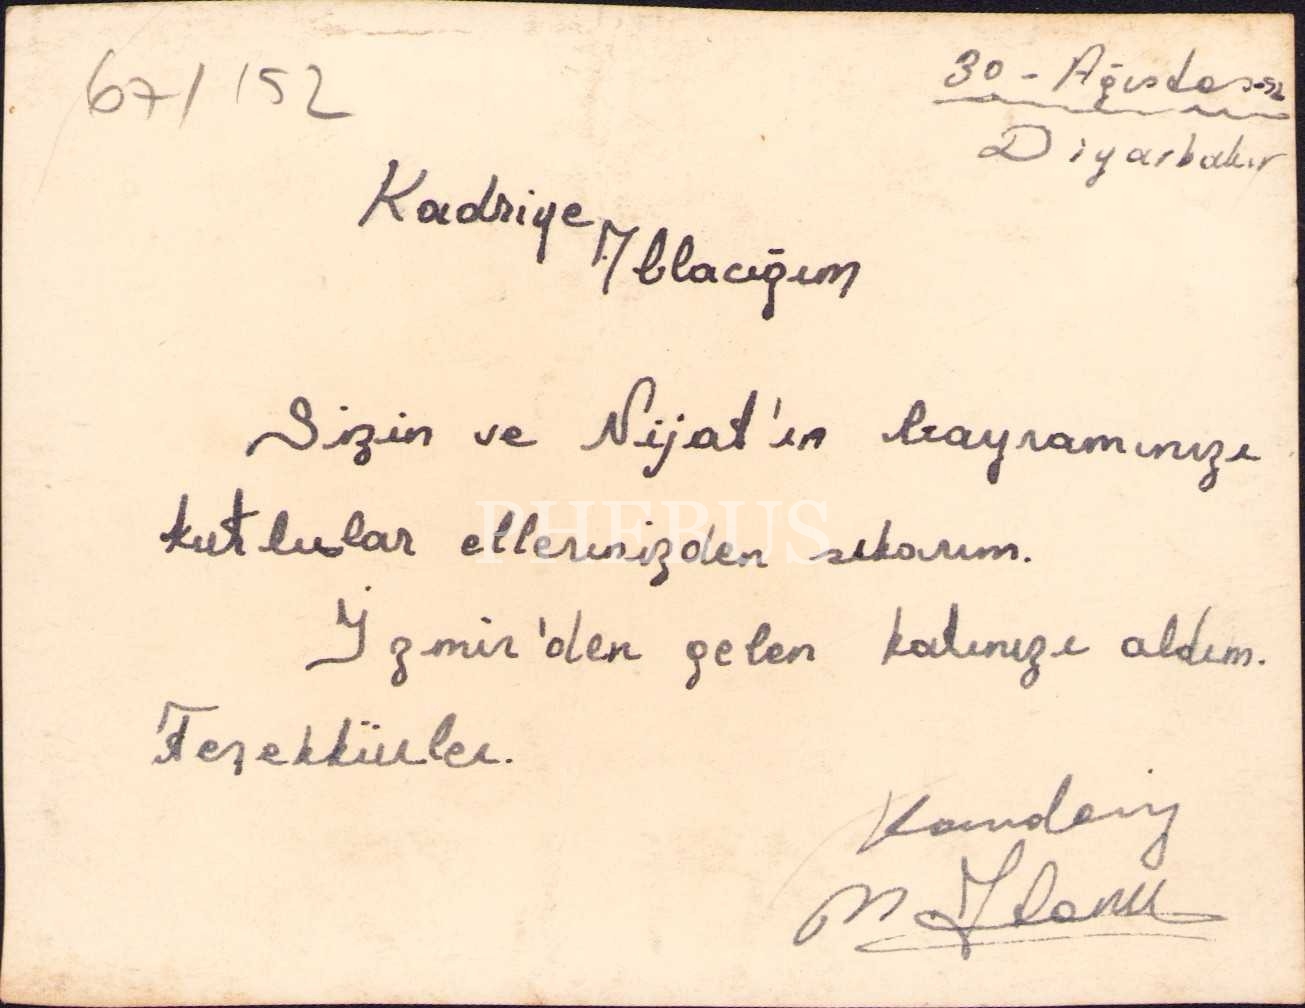 67/152
30 - Ağustos-52
Diyarbakır
Kadriye
Ablacığım
Sizin ve Nijat'ın bayramınızı
kutlular ellerinizden sıkarım.
PHEBUS
İzmir'den gelen katınızı aldım.
Teşekkürler.
Kardeşiniz